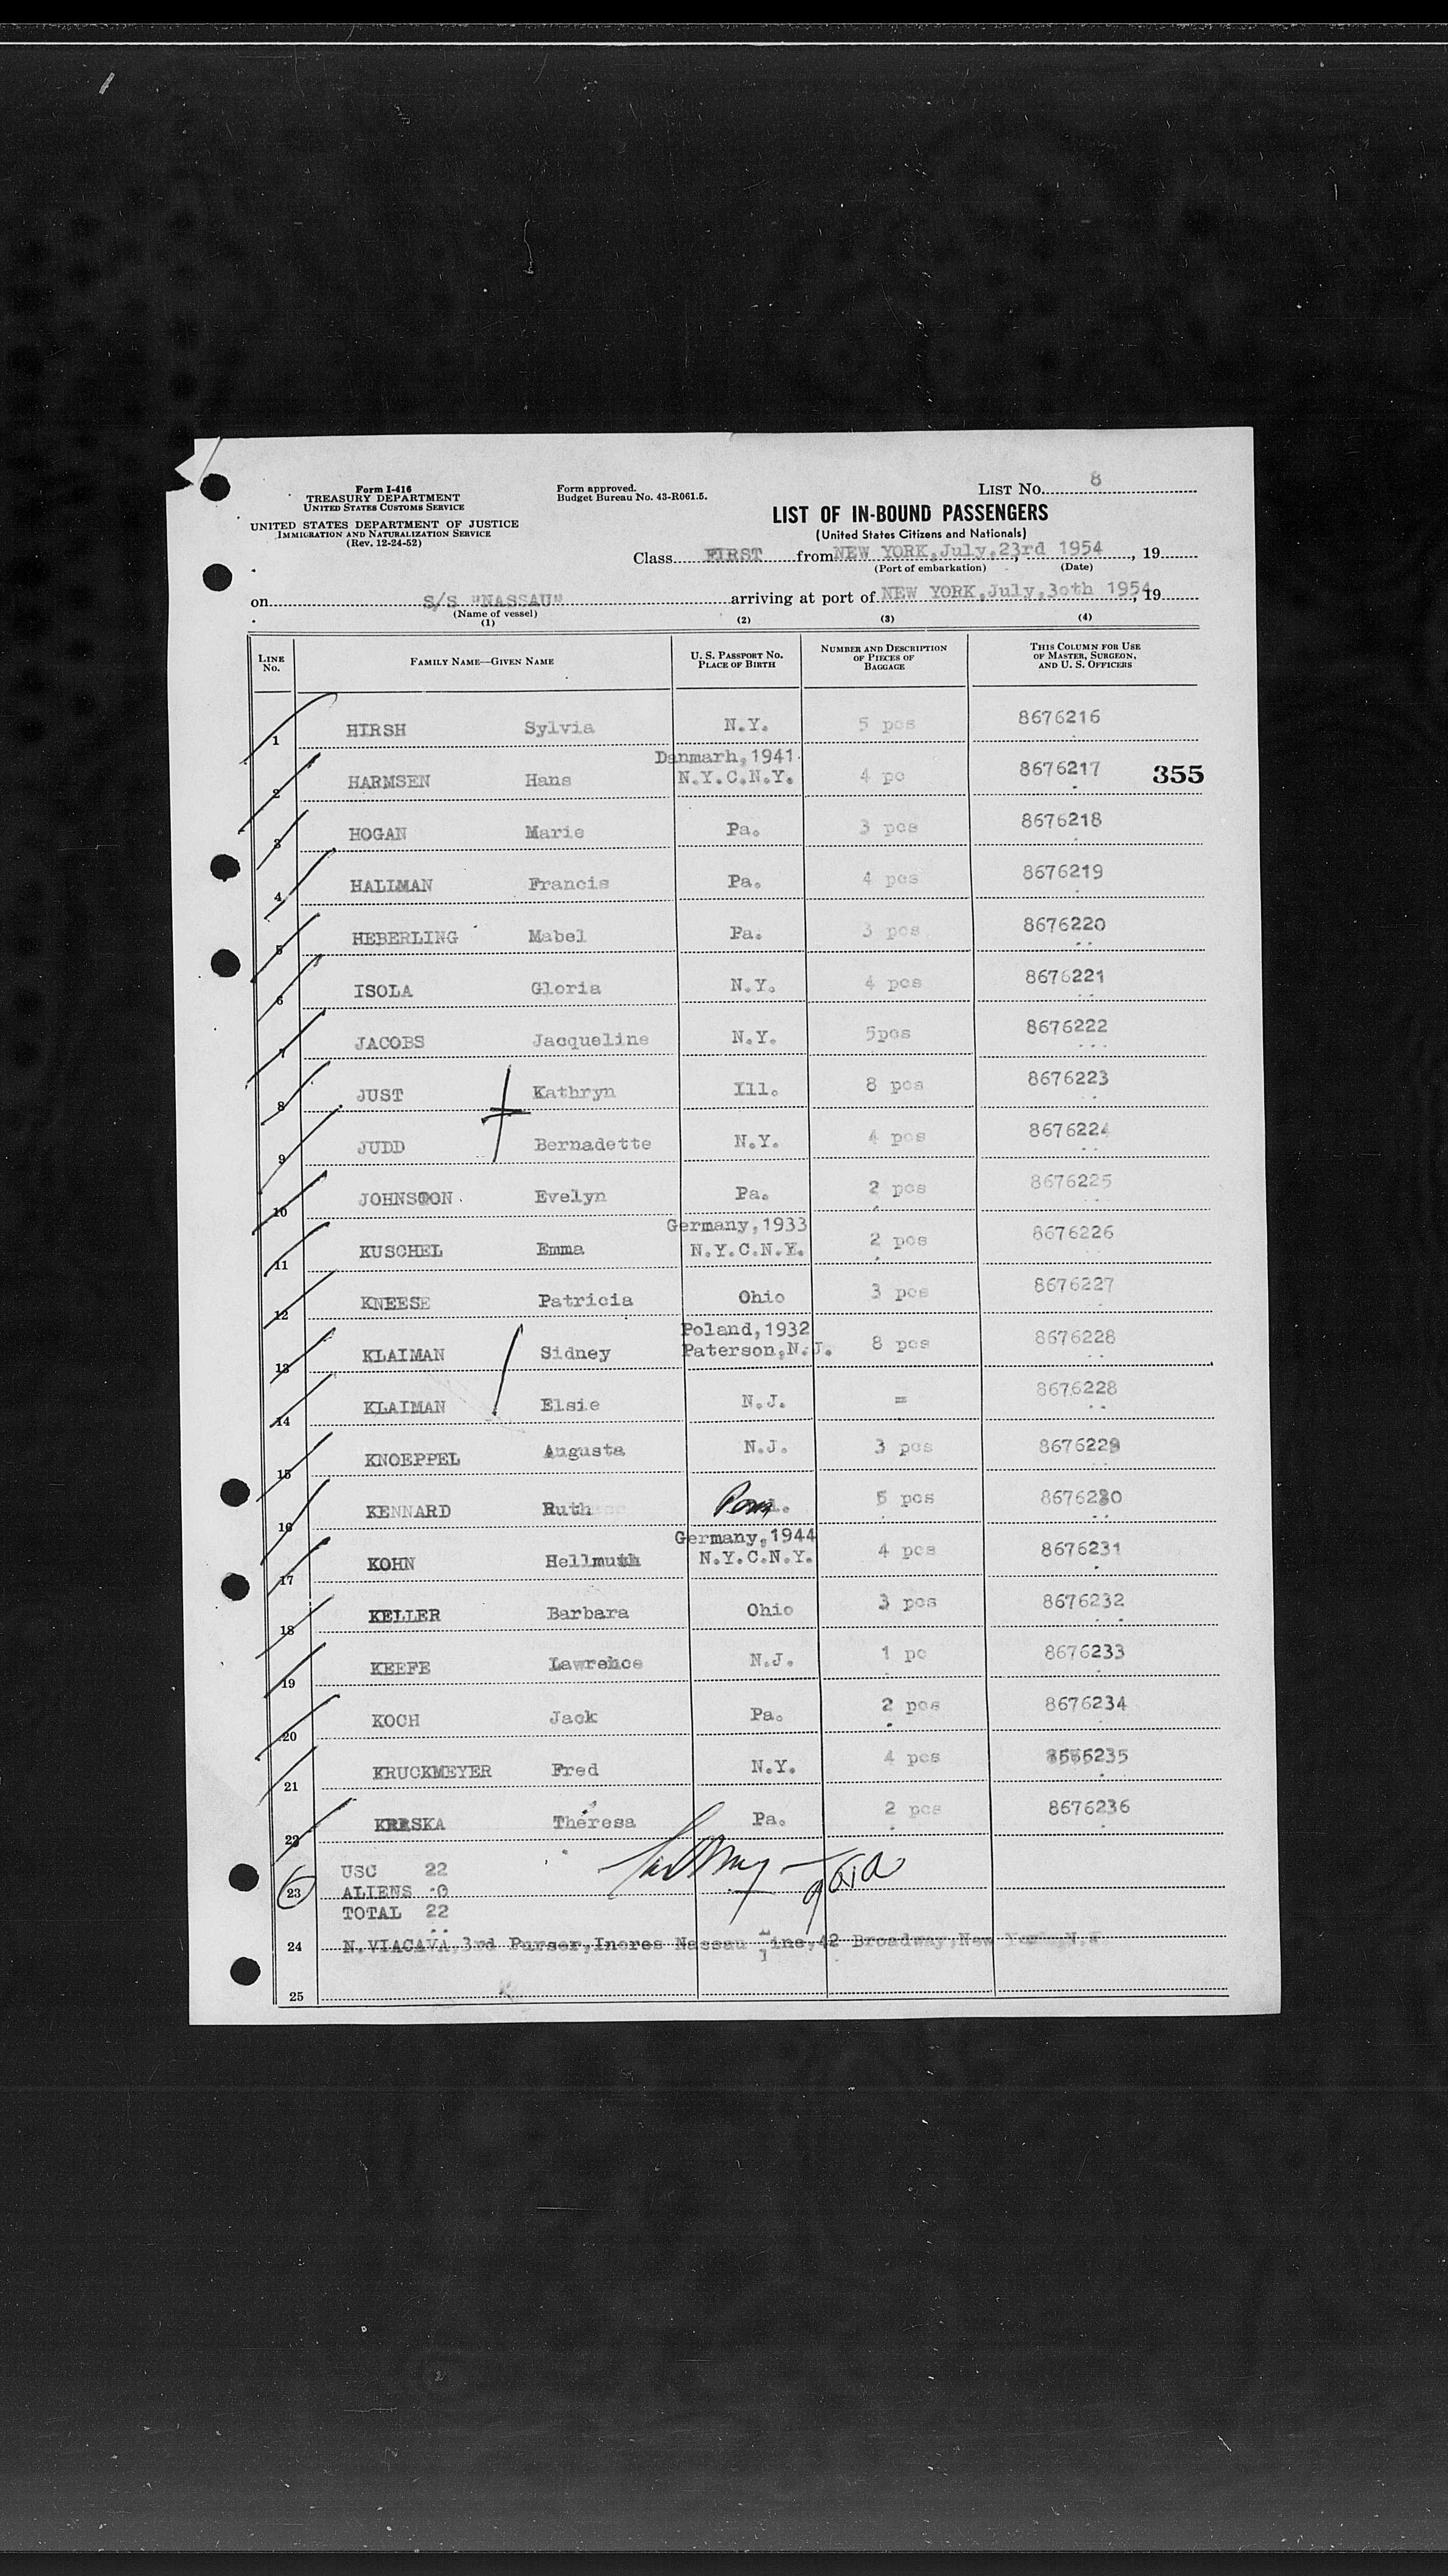 Form I-416
TREASURY DEPARTMENT
UNITED STATES CUSTOMS SERVICE
UNITED STATES DEPARTMENT OF JUSTICE
IMMIGRATION AND NATURALIZATION SERVICE
(Rev. 12-24-52)
Form approved.
Budget Bureau No. 43-R061.5.
LIST No. 8
LIST OF IN-BOUND PASSENGERS
(United States Citizens and Nationals)
Class FIRST from NEW YORK, July, 23rd 1954, 19
(Port of embarkation) (Date)
on S/S "NASSAU" arriving at port of NEW YORK, July, 30th 1954, 19
(Name of vessel)
(1) (2) (3) (4)
LINE No. FAMILY NAME—GIVEN NAME U. S. PASSPORT No. PLACE OF BIRTH NUMBER AND DESCRIPTION OF PIECES OF BAGGAGE THIS COLUMN FOR USE OF MASTER, SURGEON, AND U. S. OFFICERS
1 HIRSH Sylvia N.Y. 5 pcs 8676216
Danmarh, 1941
2 HARMSEN Hans N.Y.C.N.Y. 4 pc 8676217 355
3 HOGAN Marie Pa. 3 pcs 8676218
4 HALLMAN Francis Pa. 4 pcs 8676219
5 HEBERLING Mabel Pa. 3 pcs 8676220
6 ISOLA Gloria N.Y. 4 pcs 8676221
7 JACOBS Jacqueline N.Y. 5pcs 8676222
8 JUST Kathryn Ill. 8 pcs 8676223
9 JUDD Bernadette N.Y. 4 pcs 8676224
10 JOHNSTON Evelyn Pa. 2 pcs 8676225
Germany, 1933
11 KUSCHEL Emma N.Y.C.N.Y. 2 pcs 8676226
12 KNEESE Patricia Ohio 3 pcs 8676227
Poland, 1932
13 KLAIMAN Sidney Paterson, N.J. 8 pcs 8676228
14 KLAIMAN Elsie N.J. = 8676228
15 KNOEPPEL Augusta N.J. 3 pcs 8676229
16 KENNARD Ruth 5 pcs 8676230
Germany, 1944
17 KOHN Hellmuth N.Y.C.N.Y. 4 pcs 8676231
18 KELLER Barbara Ohio 3 pcs 8676232
19 KEEFE Lawrence N.J. 1 pc 8676233
20 KOCH Jack Pa. 2 pcs 8676234
21 KRUCKMEYER Fred N.Y. 4 pcs 8676235
22 KRESKA Theresa Pa. 2 pcs 8676236
USC 22
23 ALIENS 0
TOTAL 22
24 N. VIACAVA, 3rd Purser, Incres Nassau Line, 42 Broadway, New York, N.Y.
25